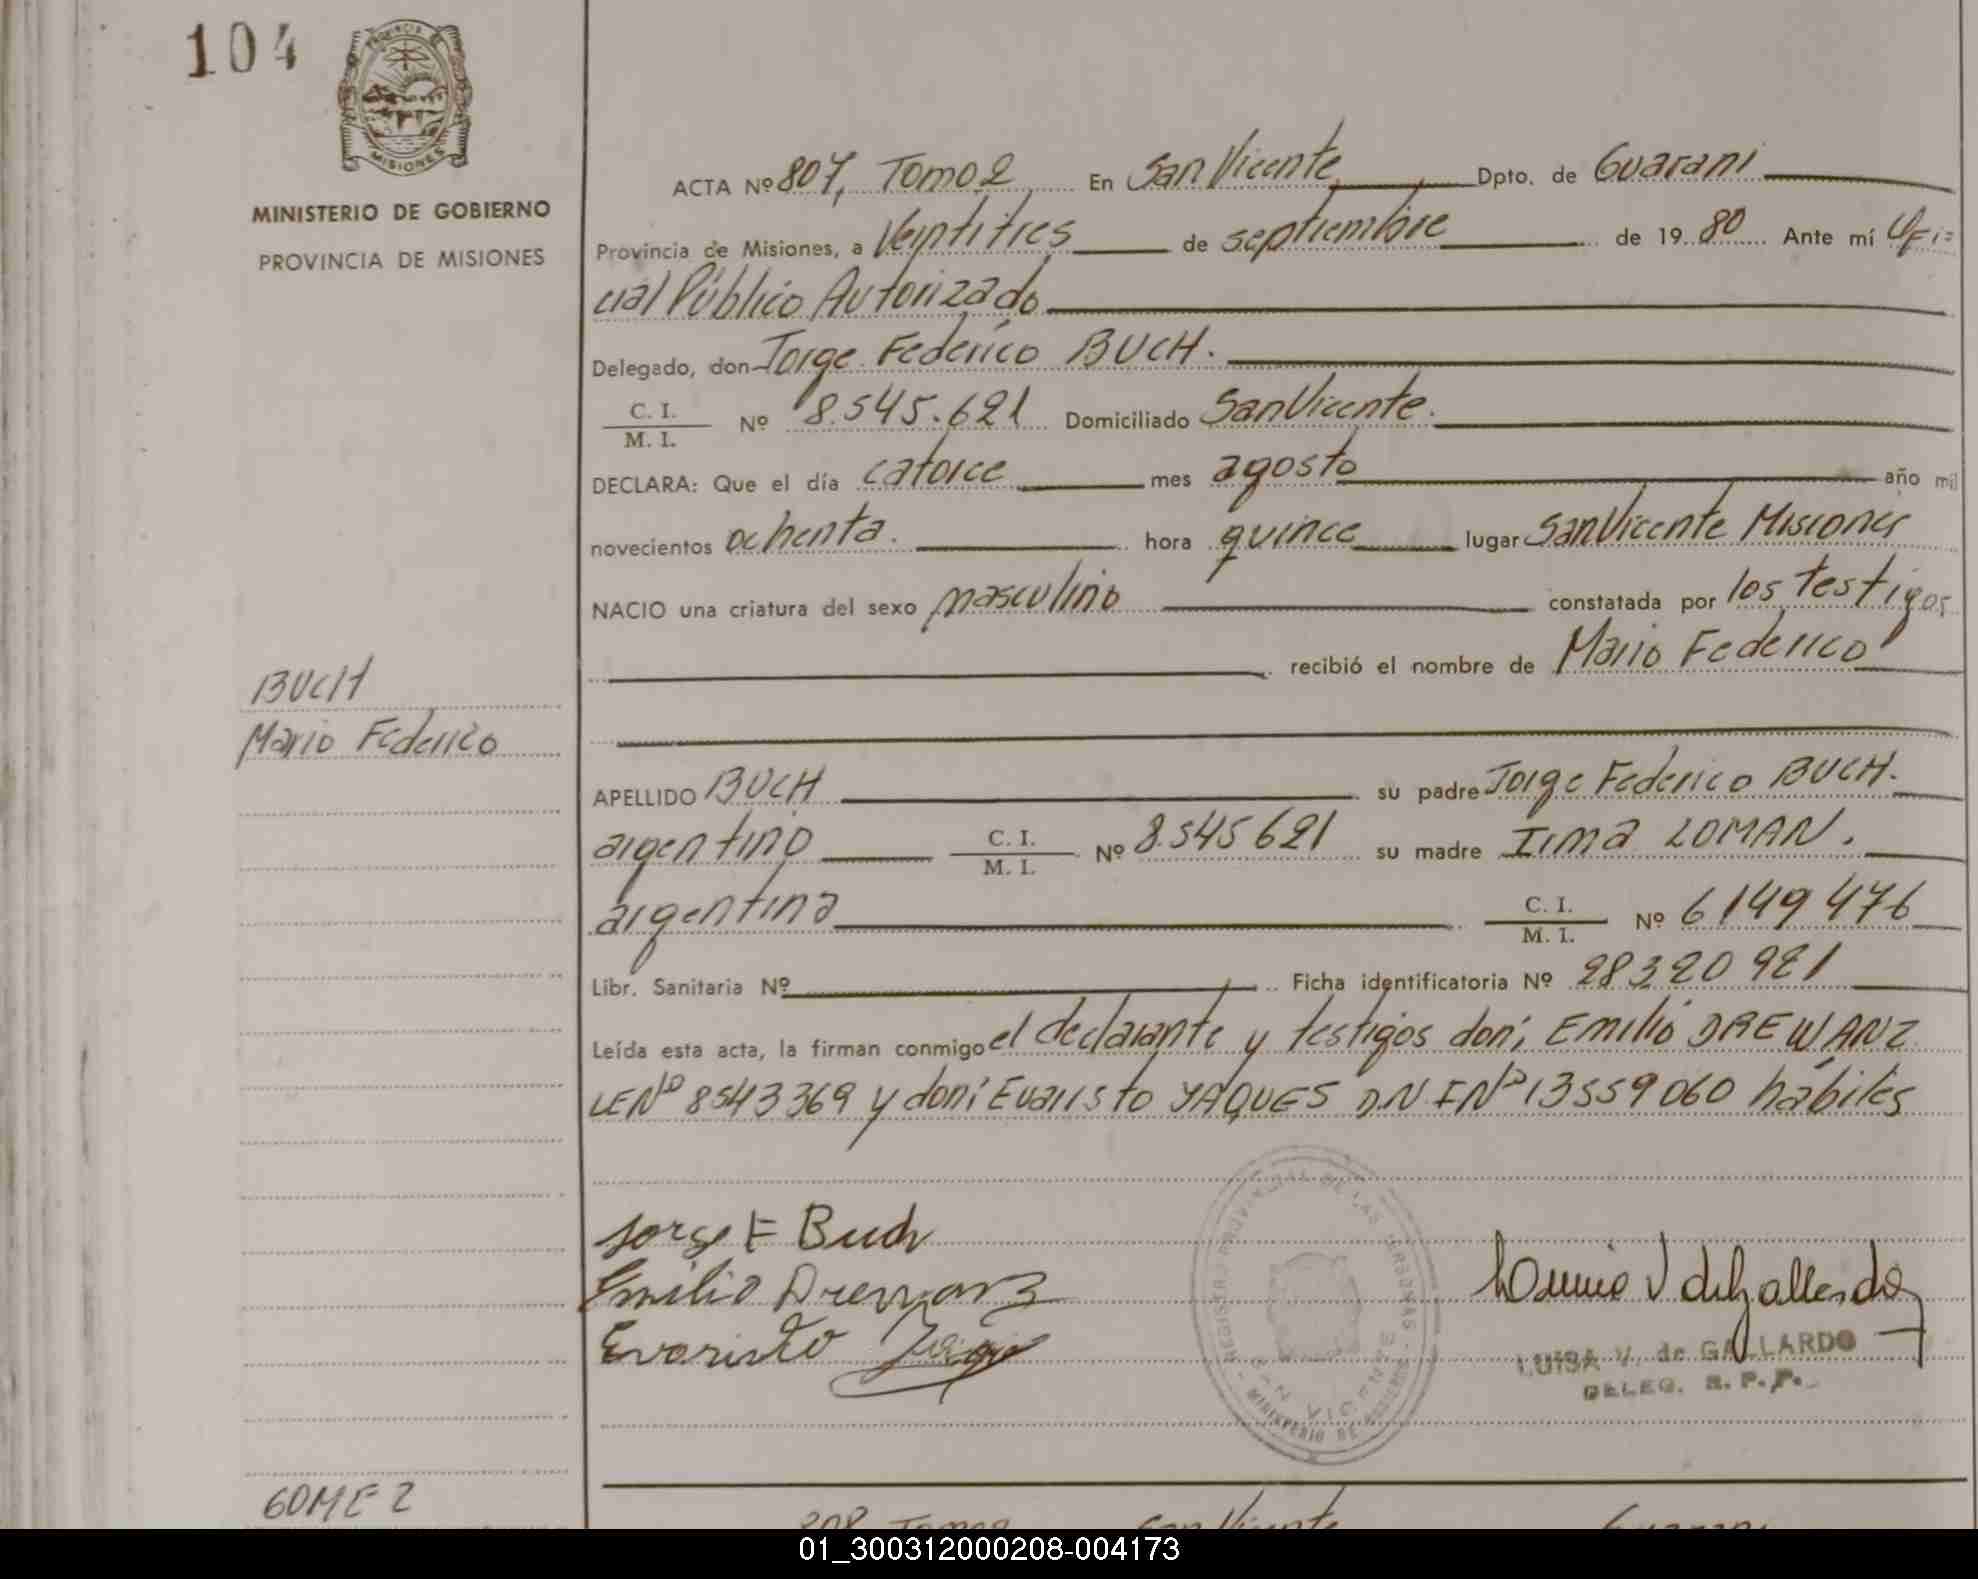 104
MISIONES
MINISTERIO DE GOBIERNO
PROVINCIA DE MISIONES
ACTA Nº 807, Tomo 2 En San Vicente Dpto. de Guarani
Provincia de Misiones, a Veintitres de septiembre de 19 80 Ante mí Ofi=
cial Público Autorizado
Delegado, don Jorge Federico BUCH.
C. I.
M. I. Nº 8.545.621 Domiciliado San Vicente.
DECLARA: Que el día catorce mes agosto año mil
novecientos ochenta. hora quince lugar San Vicente Misiones
NACIO una criatura del sexo masculino constatada por los testigos
recibió el nombre de Mario Federico
BUCH
Mario Federico
APELLIDO BUCH su padre Jorge Federico BUCH.
argentino C. I.
M. I. Nº 8.545 621 su madre Irma LOMAN.
argentina C. I.
M. I. Nº 6149 476
Libr. Sanitaria Nº Ficha identificatoria Nº 28320921
Leída esta acta, la firman conmigo el declarante y testigos don; Emilio DREWANZ
LE Nº 8543369 y don; Evaristo YAQUES DNI Nº 13559060 hábiles
Jorge F Buch
Emilio Drewanz
Evaristo
REGISTRO PROVINCIAL DE LAS PERSONAS
SAN VICENTE
MINISTERIO DE GOBIERNO
V de Gallardo
LUISA V. de GALLARDO
DELEG. R. P. P.
GOMEZ
808 Tomo 2 San Vicente Guarani
01_300312000208-004173